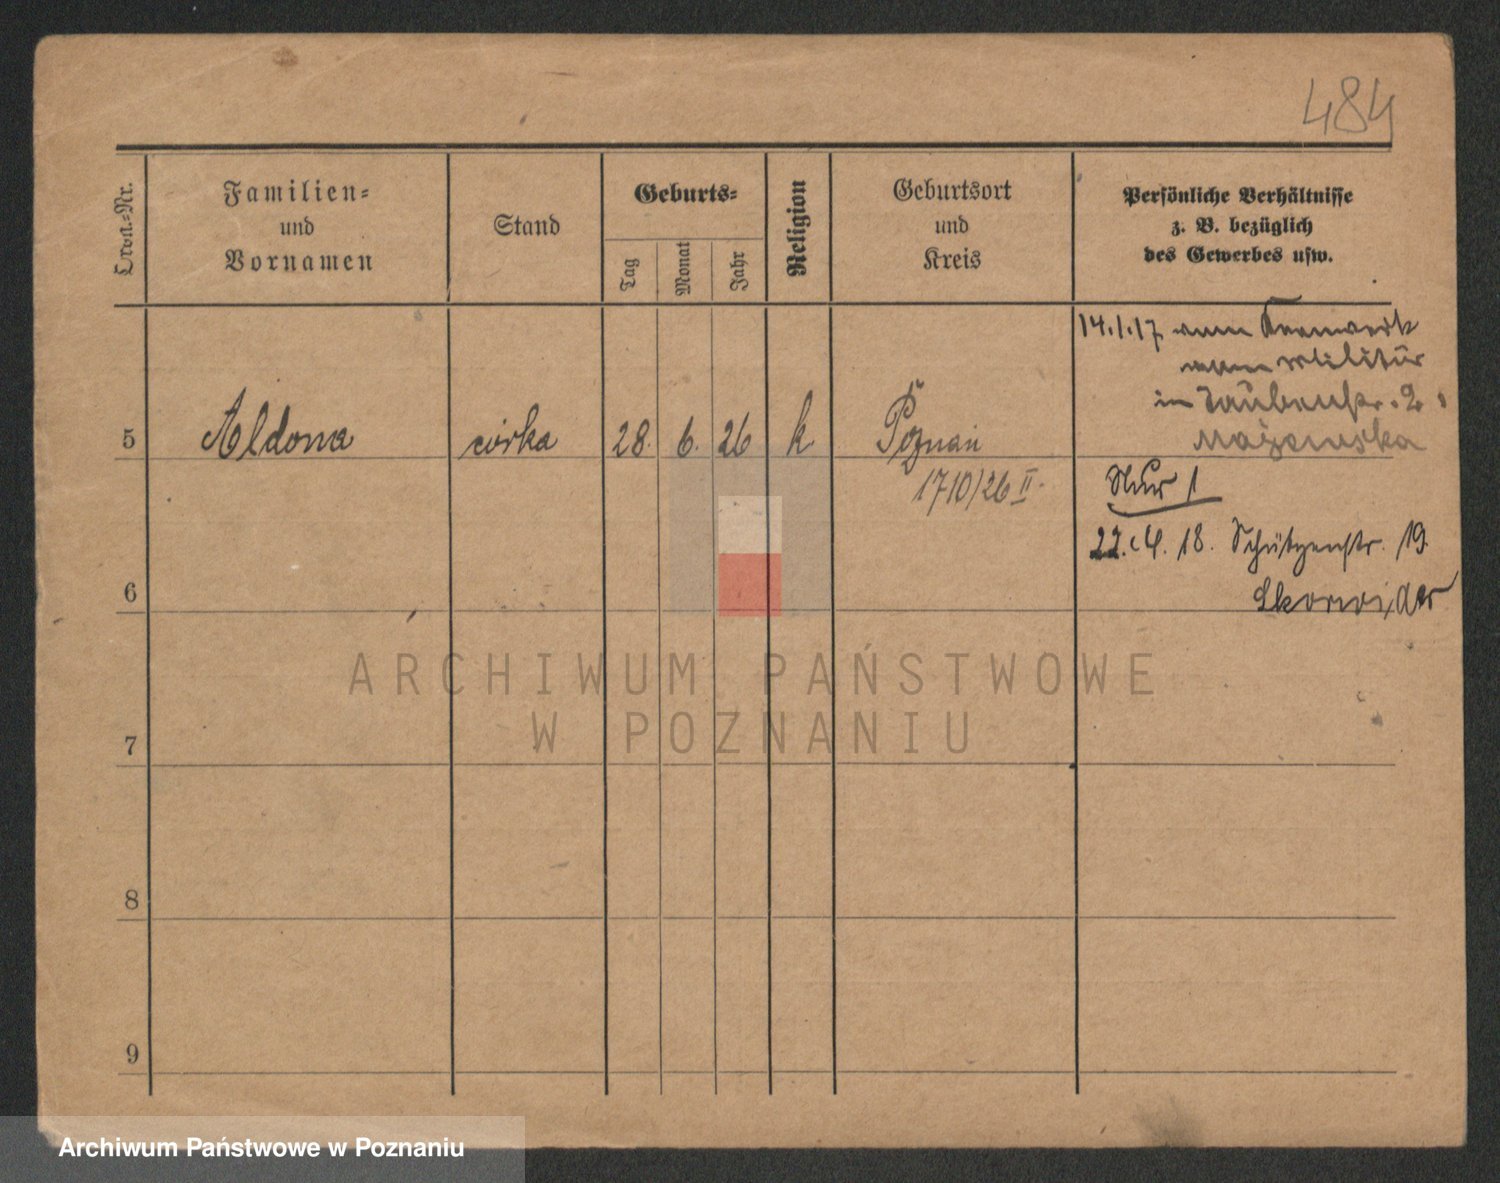 484
Ordn.-Nr.
Familien-
und
Vornamen
Stand
Geburts-
Tag
Monat
Jahr
Religion
Geburtsort
und
Kreis
Persönliche Verhältnisse
z. B. bezüglich
des Gewerbes usw.
14.1.17 vom
vom Militär
in Taubenstr. 2
5 Aldona córka 28. 6. 26 k Poznań
1710/26 II.
22.4.18. Schützenstr. 19.
6
ARCHIWUM PAŃSTWOWE
W POZNANIU
7
8
9
Archiwum Państwowe w Poznaniu